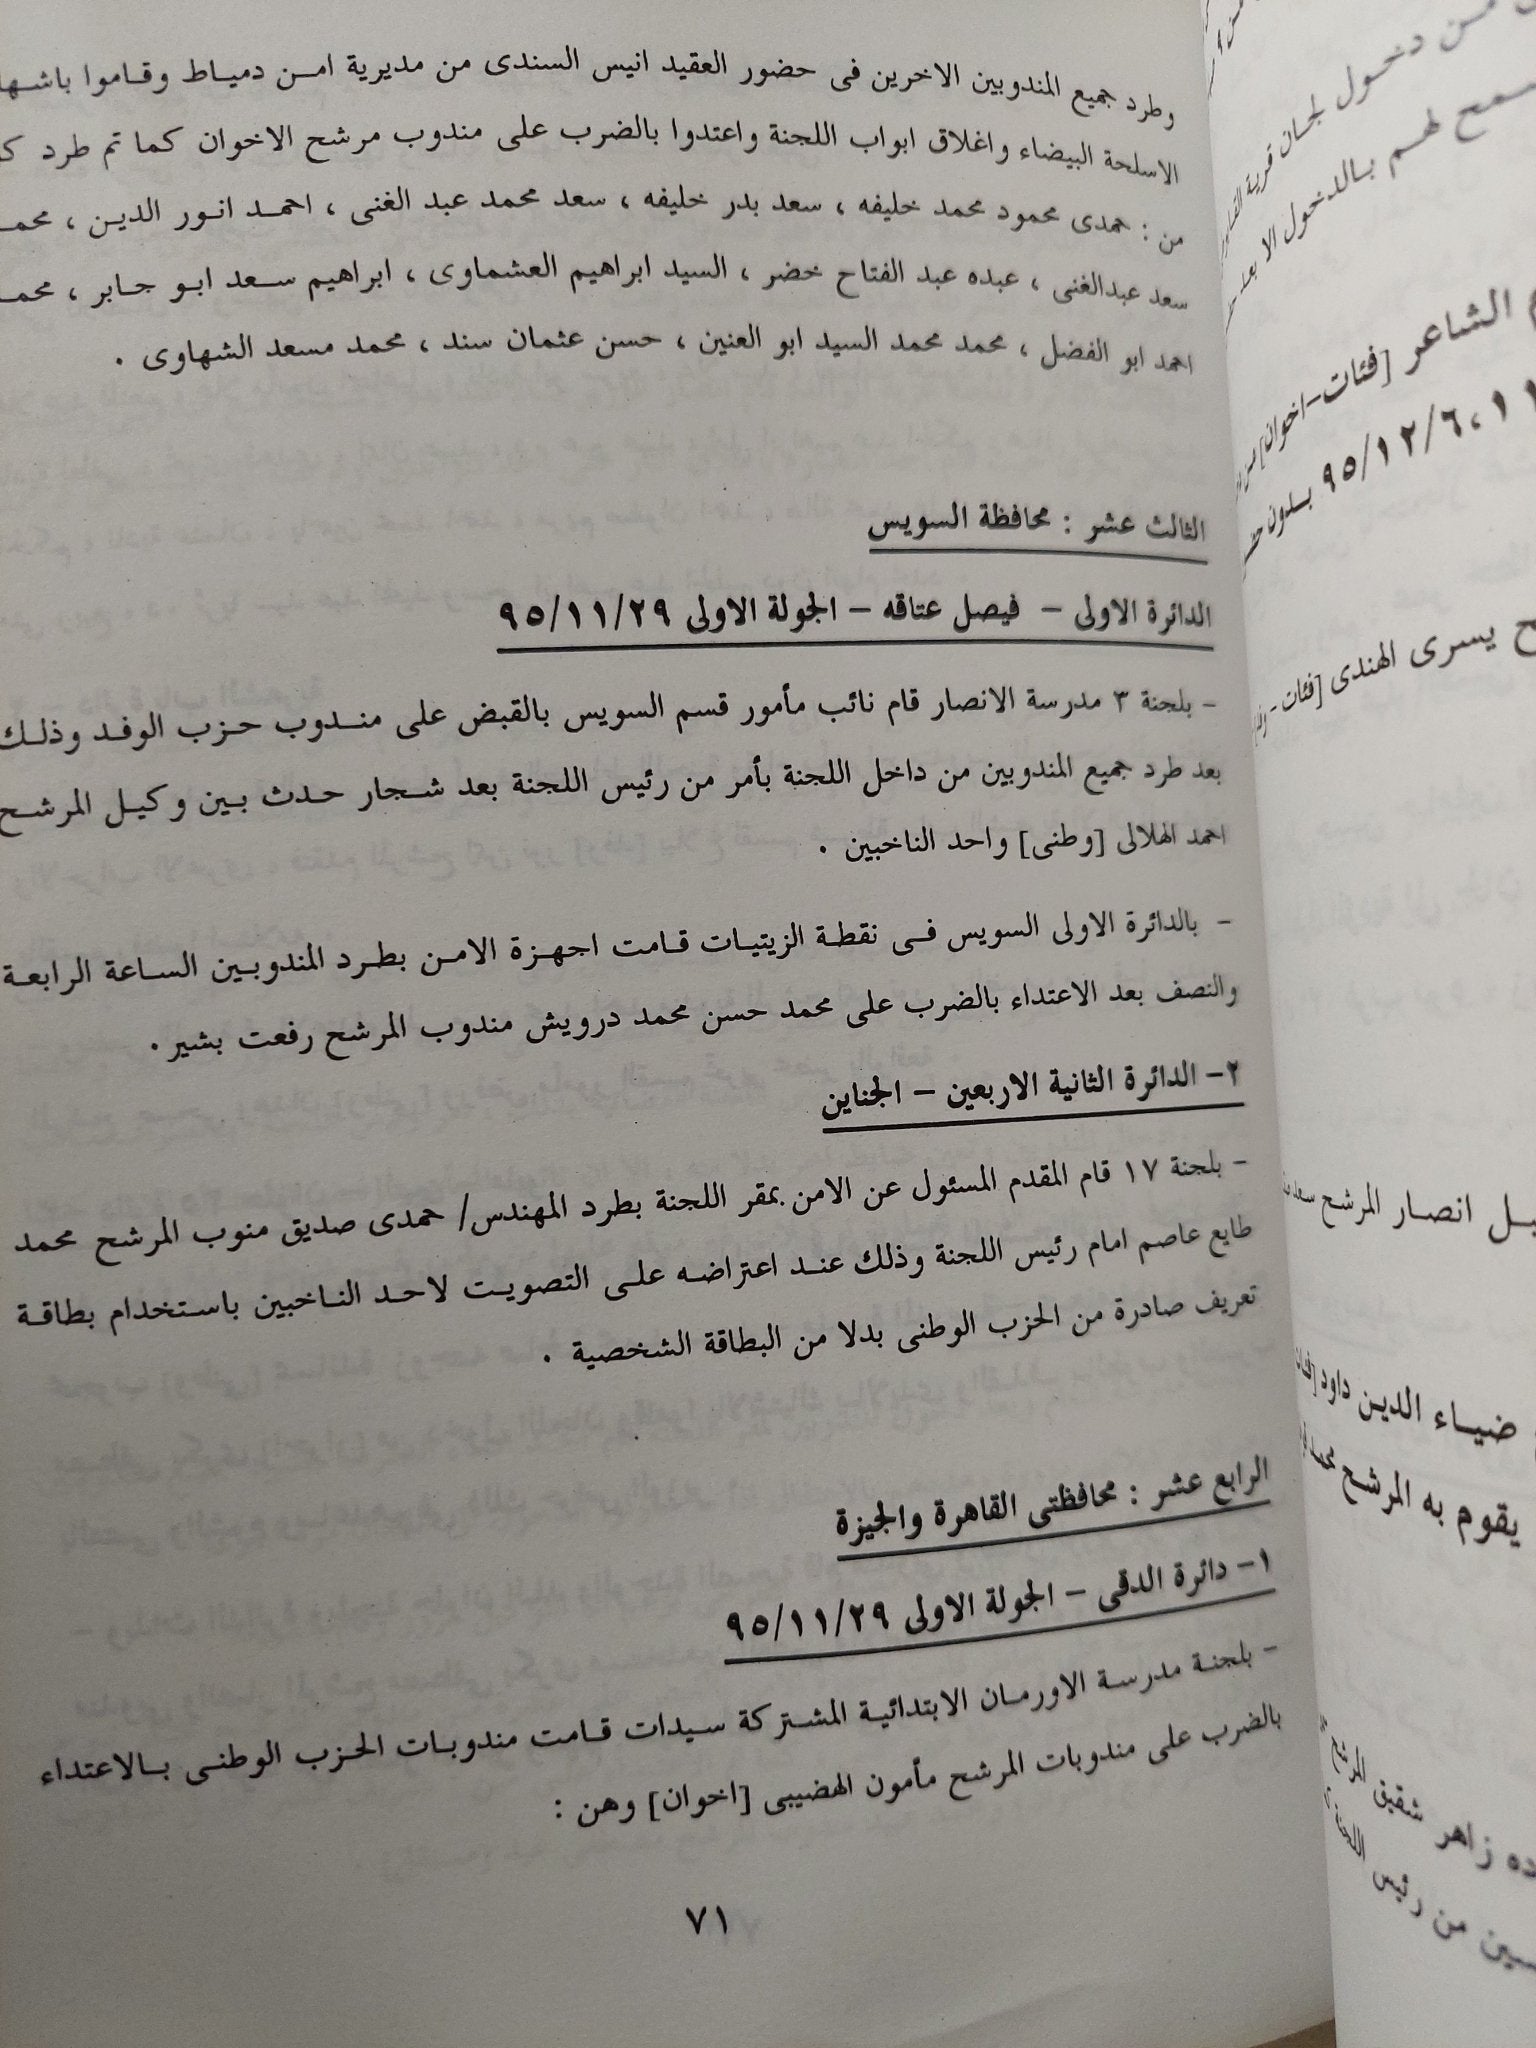 وطرد جميع المندوبين الاخرين فى حضور العقيد انيس السندى من مديرية امن دمياط وقاموا باشها
الاسلحة البيضاء واغلاق ابواب اللجنة واعتدوا بالضرب على مندوب مرشح الاخوان كما تم طرد ك
من : حمدى محمود محمد خليفه ، سعد بدر خليفه ، سعد محمد عبد الغنى ، احمد انور الدين ، محمـ
سعد عبدالغنى ، عبده عبد الفتاح خضر ، السيد ابراهيم العشماوى ، ابراهيم سعد ابو جابر ، محمـ
احمد ابو الفضل ، محمد محمد السيد ابو العنين ، حسن عثمان سند ، محمد مسعد الشهاوى .
الثالث عشر : محافظة السويس
الدائرة الاولى - فيصل عتاقه - الجولة الاولى ٩٥/١١/٢٩
- بلجنة ٣ مدرسة الانصار قام نائب مأمور قسم السويس بالقبض على مندوب حزب الوفد وذلك
بعد طرد جميع المندوبين من داخل اللجنة بأمر من رئيس اللجنة بعد شجار حدث بين وكيل المرشح
احمد الهلالى [وطنى] واحد الناخبين .
- بالدائرة الاولى السويس فى نقطة الزيتيات قامت اجهزة الامن بطرد المندوبين الساعة الرابعة
والنصف بعد الاعتداء بالضرب على محمد حسن محمد درويش مندوب المرشح رفعت بشير .
٢- الدائرة الثانية الاربعين - الجناين
- بلجنة ١٧ قام المقدم المسئول عن الامن بمقر اللجنة بطرد المهندس/ حمدى صديق منوب المرشح محمد
طايع عاصم امام رئيس اللجنة وذلك عند اعتراضه على التصويت لاحد الناخبين باستخدام بطاقة
تعريف صادرة من الحزب الوطنى بدلا من البطاقة الشخصية .
الرابع عشر : محافظتى القاهرة والجيزة
١- دائرة الدقى - الجولة الاولى ٩٥/١١/٢٩
- بلجنة مدرسة الاورمان الابتدائية المشتركة سيدات قامت مندوبات الحزب الوطنى بالاعتداء
بالضرب على مندوبات المرشح مأمون الهضيبى [اخوان] وهن :
٧١
من دخول لجان قرية
سمح لهم بالدخول الا بعد
الشاعر [فئات-اخوان] من
٩٥/١٢/٦ بدون
يسرى الهندى [فئات -
انصار المرشح سعد
ضياء الدين داود
يقوم به المرشح محمد
زاهر شقيق المرشح
من رئيس اللجنة